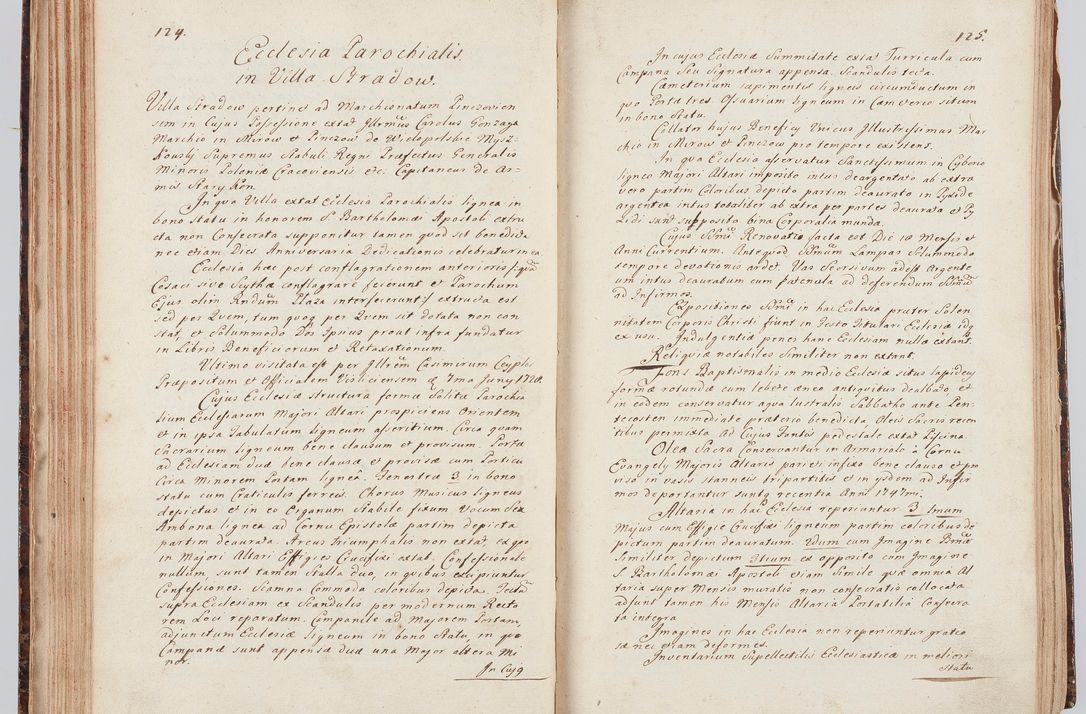 124.
Ecclesia Parochialis
in Villa Stradow.
Villa Stradow pertinet ad Marchionatum Pinczovien
sem in Cujus Possessione extat Illrmus Carolus Gonzaga
Marchio in Mirow et Pinczow de Wielopolskie Mysz-
kovsky Supremus Stabuli Regni Præfectus Generalis
Minoris Poloniæ Cracoviensis etc. Capitaneus de Ar-
mis Stary Kon.
In qua Villa extat Ecclesia Parochialis lignea in
bono statu in honorem S. Bartholomæi Apostoli extru
cta non Consecrata supponitur tamen quod sit benedicta
nec etiam Dies Anniversaria Dedicationis celebratur in ea.
Ecclesia hæc post conflagrationem anterioris /:quam
Cosaci sive Scythæ conflagrare fecerunt et Parochum
Ejus olim Rndum Plaza interfecerunt:/ extructa est
sed per Quem, tum quoq per Quem sit dotata non con
stat, et Solummodo Dos Ipsius proat infra fundatur
in Libris Beneficiorum et Retaxationum.
Ultimo visitata est per Illrem Casimirum Ceypler
Præpositum et Officialem Visliciensem q 7ma Juny 1728.
Cujus Ecclesiæ structura forma Solita Parochia
lium Ecclesiarum Majori Altari prospiciens Orientem
et in ipsa Tabulatum ligneum asseritium. Circa quam
Sacrarium ligneum bene clausum et provisum. Portæ
ad Ecclesiam duæ bene clausæ et provisæ cum Porticu
Circa Minorem Portam ligneâ. Fenestræ 3 in bono
statu cum Craticulis ferreis. Chorus Musicus ligneus
depictus et in eo Organum Stabile fixum Vocum Sex
Ambona lignea ad Cornu Epistolæ partim depicta
partim deaurata. Arcus Triumphalis non extat, ex quo
in Majori Altari Effigies Crucifixi extat. Confessionale
nullum sunt tamen Stalla duo, in quibus excipiuntur
Confessiones. Scamna Commoda coloribus depicta. Tectu
supra Ecclesiam ex Scandulis per modernum Recto
rem Loci reparatum. Campanile ad Majorem Portam,
adjunctum Ecclesiæ ligneum in bono Statu, in quo
Campanæ sunt appensæ duæ una Major altera Mi
nor.
In Cujq
125.
In cujus Ecclesiæ Summitate extat Turricula cum
Campana Seu Signatura appensa. Scandulis tecta.
Cæmeterium sæpimentis ligneis circumductum in
quo Portæ tres Ossuarium ligneum in Cæmeterio situm
in bono Statu.
Collator hujus Beneficy Unicus Illustrissimus Mar
chio in Mirow et Pinczow pro tempore existens.
In qua Ecclesia asservatur Sanctissimum in Cyborio
ligneo Majori Altari imposito intus deargentato ab extra
vero partim Coloribus depicto partim deaurato in Pyxide
argentea intus totaliter ab extra per partes deaurata et Py
xidi sunt supposito bina Corporalia munda.
Cujus SSmi Renovatio facta est Die 10 Mensis et
Anni Currentium. Ante quod SSmum Lampas Solummodo
tempore devotionis ardet. Vas Seorsivum adest Argente
um intus deauratum cum patenula ad deferendum SSmũ
ad Infirmos.
Expositiones SSmi in hac Ecclesia præter Solen
nitatem Corporis Christi fiunt in Festo Titulari Ecclesiæ idq
ex usu. Indulgentiæ penes hanc Ecclesiam nullæ extant.
Reliquiæ notabiles Similiter non extant.
Fons Baptismalis in medio Ecclesiæ situs lapideus
forma rotunda cum lebete æneo antiquitus dealbato, et
in eodem conservatur aqua lustralis Sabbatho ante Pen-
tecosten immediate præterito benedicta Oleis Sacris recen
tibus permixta. Ad Cujus Fontis pedestale extat Piscina.
Olea Sacra Conservantur in Armariolo à Cornu
Evangely Majoris Altaris parieti infixo bene clauso et pro
viso in vasis stanneis tripartibus et in ysdem ad Infir
mos deportantur suntq recentia Anni 1747mi.
Altaria in hac Ecclesia reperiuntur 3 Imum
Majus cum Effigie Crucifixi ligneum partim coloribus de
pictum partim deauratum. 2dum cum Imagine Bmæ
Similiter depictum 3tium ex opposito com Imagine
S. Bartholomæi Apostoli etiam Simile quæ omnia Al
taria super Mensis muratis non consecratis collocata
adsunt tamen his Mensis Altaria Portatilia Consecra
ta integra
Imagines in hac Ecclesia non reperiuntur gratio
sæ nec etiam deformes.
Inventarium Supellectilis Ecclesiasticæ in meliori
Statu